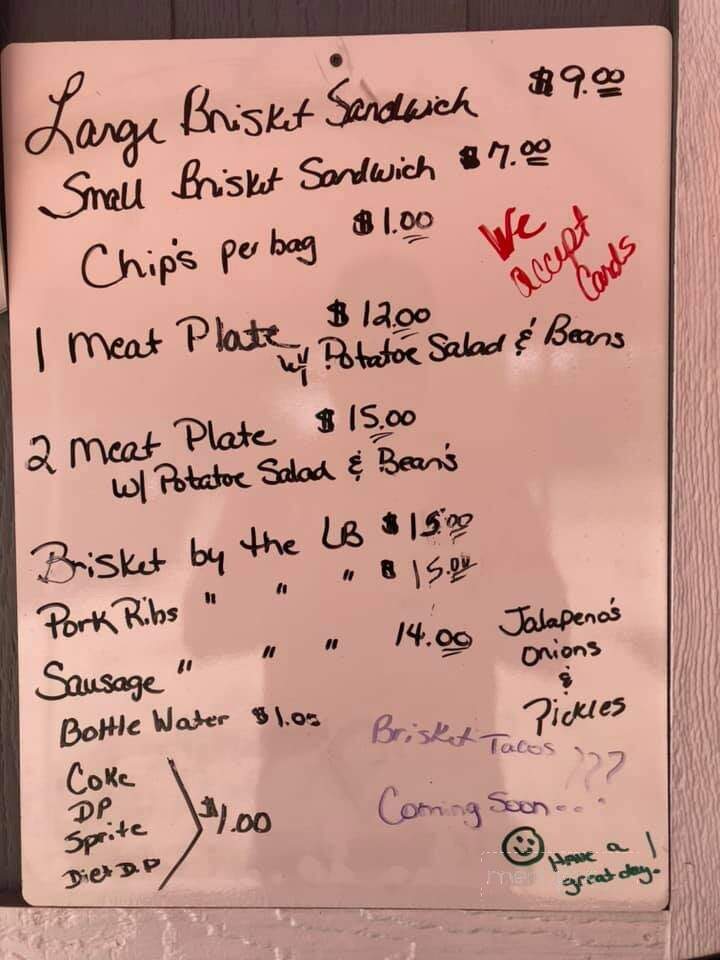 Large Brisket Sandwich $9.00
Small Brisket Sandwich $7.00
Chip's per bag $1.00
We
accept
Cards
1 Meat Plate $12.00
w/ Potatoe Salad & Beans
2 Meat Plate $15.00
w/ Potatoe Salad & Bean's
Brisket by the LB $15.00
Pork Ribs " " " $15.00
Sausage " " " 14.00
Jalapeno's
Onions
&
Pickles
Bottle Water $1.00
Coke
DP
Sprite
Diet D.P
$1.00
Brisket Tacos ???
Coming Soon...
Have a
great day.